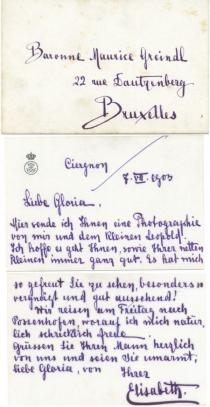 Baronne Maurice Greindl
22 rue Lautzenberg
Bruxelles
Ciergnon
7. VII. 1903
Liebe Gloria.
Hier sende ich Ihnen eine Photographie
von mir und dem kleinen Leopold!
Ich hoffe es geht Ihnen, sowie Ihrer netten
Kleinen immer ganz gut. Es hat mich
so gefreut Sie zu sehen, besonders so
vergnügt und gut aussehend!
Wir reisen am Freitag nach
Possenhofen, worauf ich mich natür.
lich schrecklich freue
Grüssen Sie Ihren Mann herzlich
von uns und seien Sie umarmt,
liebe Gloria, von Ihrer
Elisabeth.